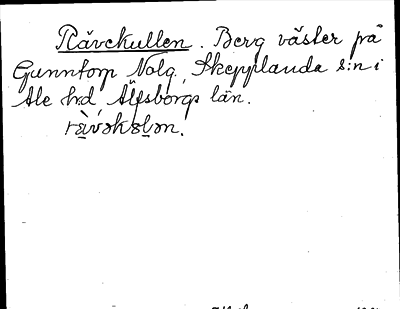 Rävekullen. Berg väster på
Gunntorp Nolg. Skepplanda s:n i
Ale hd, Älfsborgs län.
rä̀vəkɛlən.